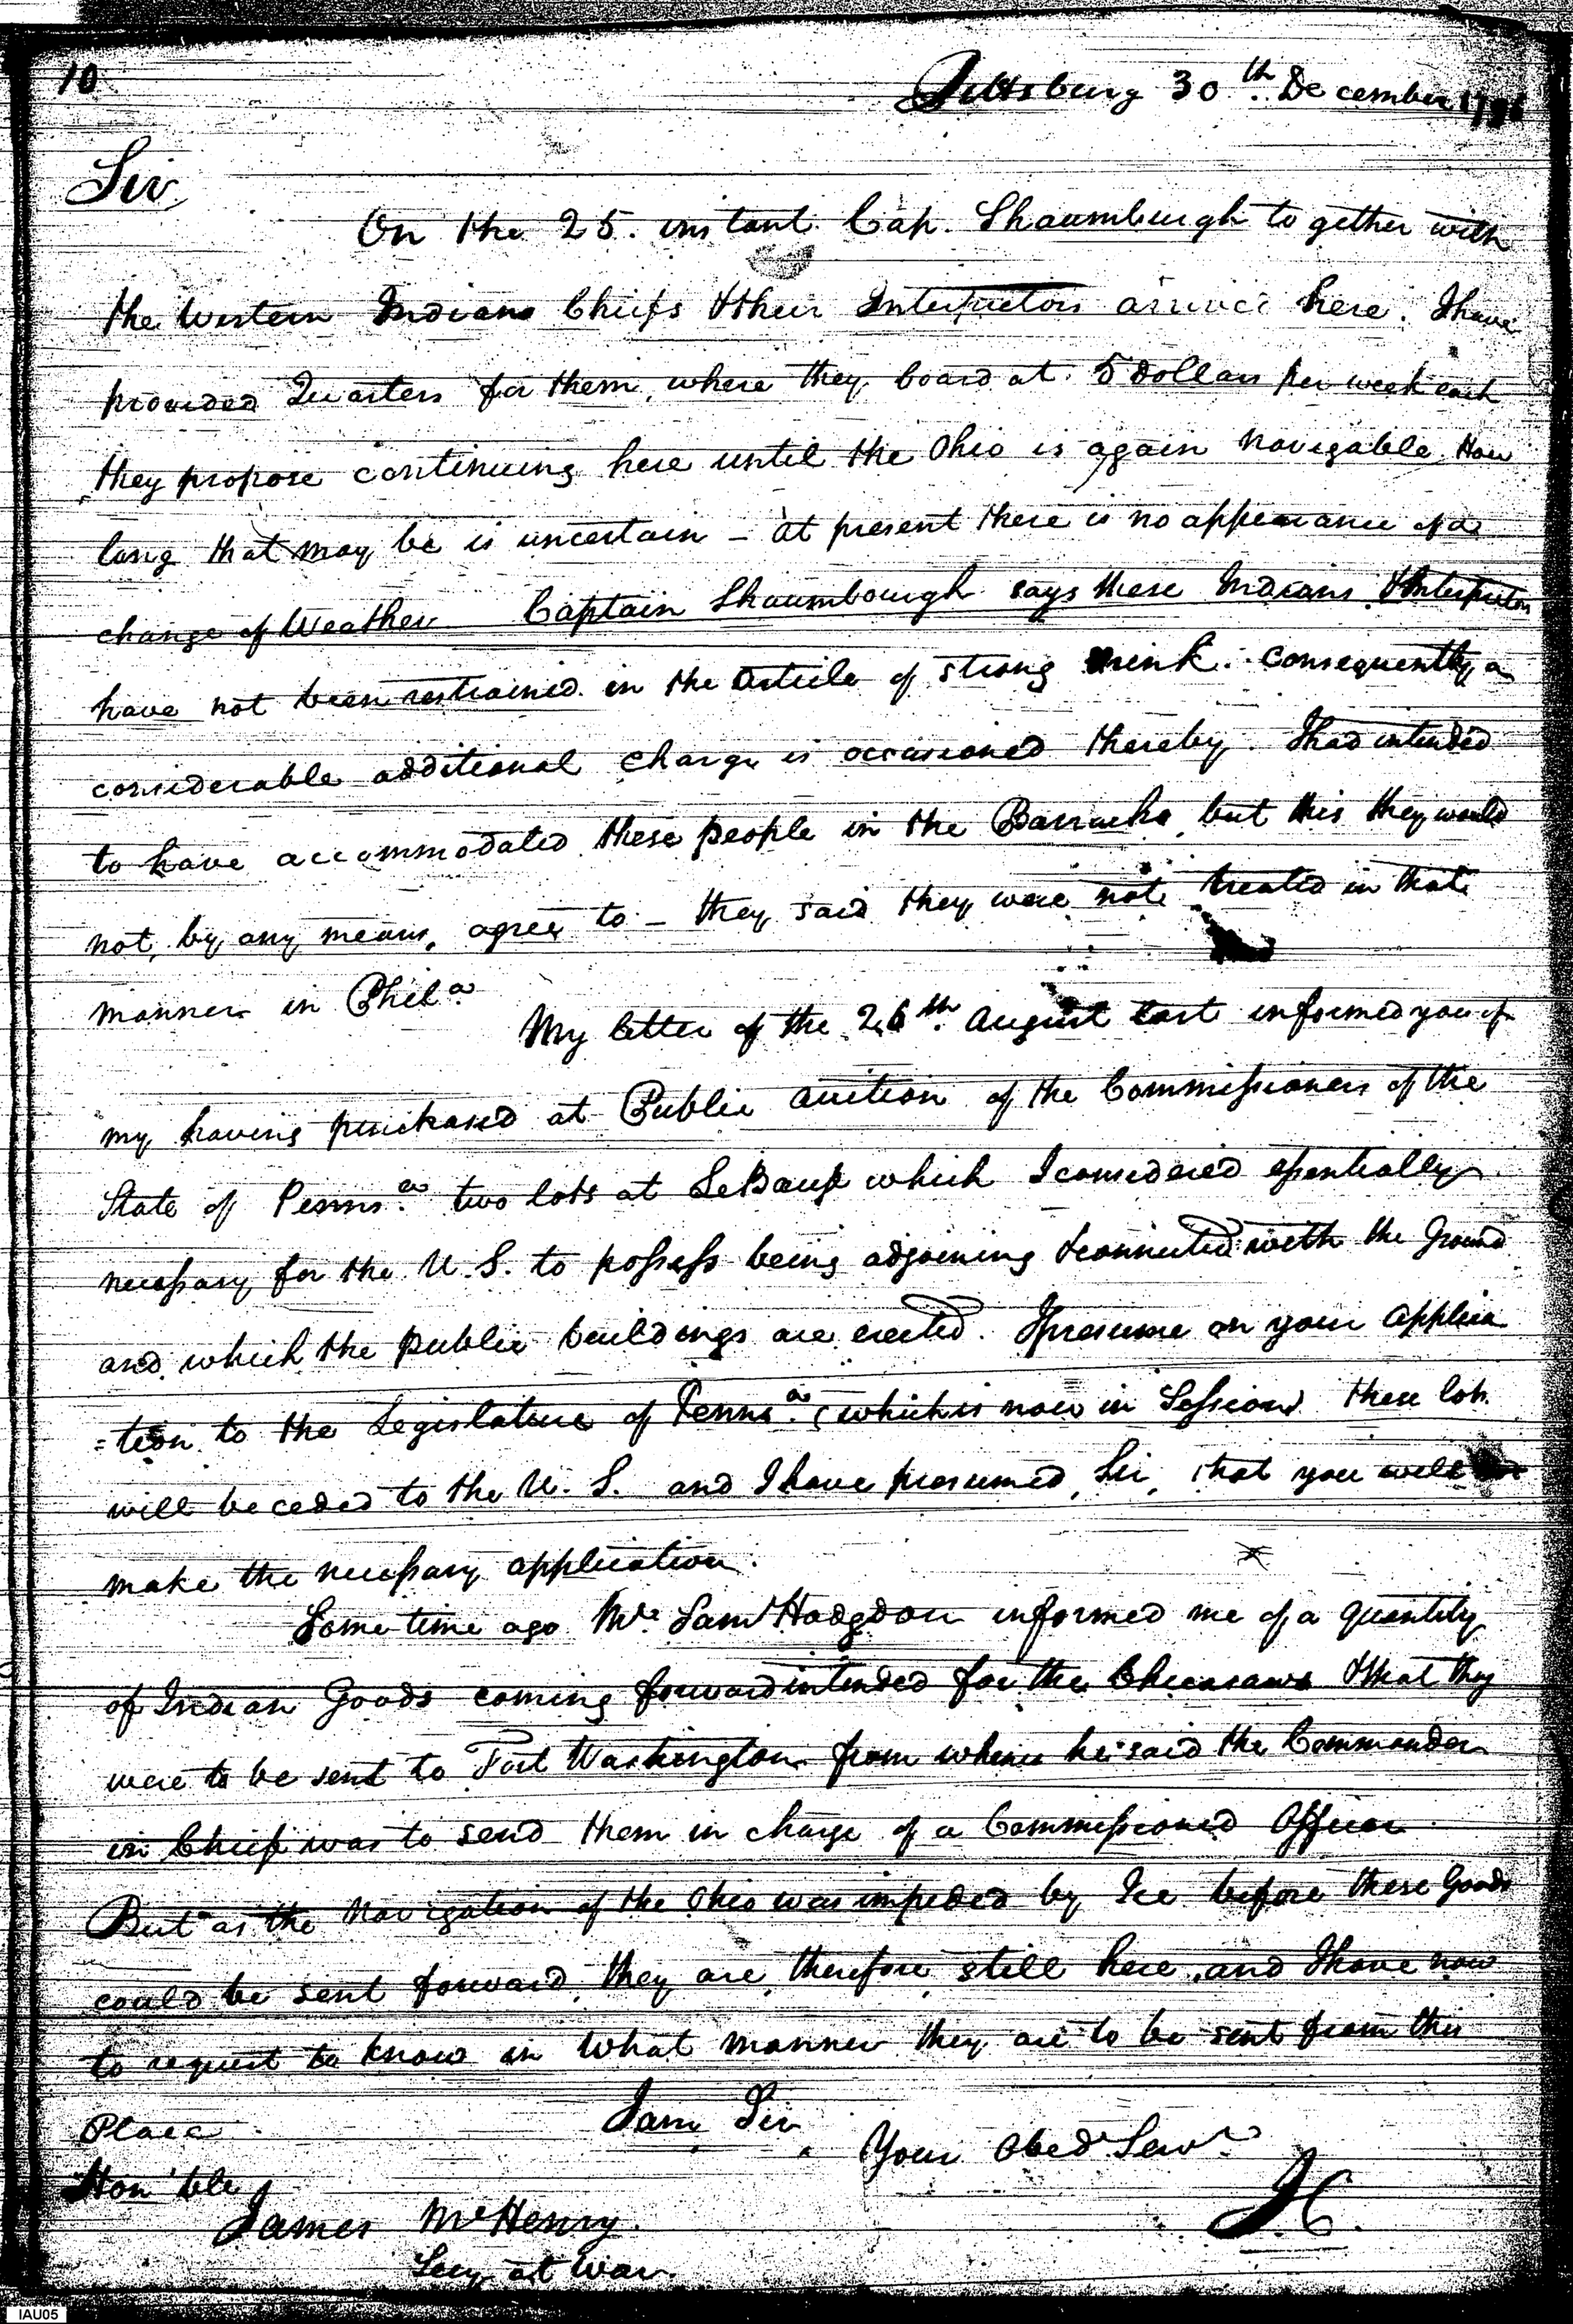 10
Pittsburg 30th. December 1796
Sir,
On the 25. instant Cap. Shaumburgh together with
the Western Indians Chiefs & their Interpretors arrived here. I have
provided Quarters for them, where they board at 5 dollars per week each
they propose continuing here until the Ohio is again navigable, How
long that may be is uncertain - at present there is no appearance of a
change of Weather Captain Shaumbourgh says these Indians & Interpretors
have not been restrained in the Article of strong drink. Consequently a
considerable additional charge is occasioned thereby. I had intended
to have accommodated these people in the Barracks, but this they would
not, by any means, agree to - they said they were not treated in that
manner in Phila.
My letter of the 26th. August last informed you of
my having purchased at Public auction of the Commissioners of the
State of Penns.a two lots at LeBauf which I considered essentially
necessary for the U. S. to possess being adjoining & connected with the Ground
and which the public buildings are erected. I presume on your applica
=tion to the Legislature of Penns.a (which is now in Session) these lots
will be ceded to the U. S. and I have presumed, Sir, that you will
make the necessary application.
Some time ago Mr. Saml Hodgdon informed me of a quantity
of Indian Goods coming forward intended for the Chicasaws & that they
were to be sent to Fort Washington from whence he said the Commander
in Chief was to send them in charge of a Commissioned Officer
But as the Navigation of the Ohio was impeded by Ice before these Goods
could be sent forward, they are, therefore, still here, and I have now
to request to know in what manner they are to be sent from this
Place.
I am Sir
Your Obed Servt
Hon'ble
James McHenry.
Secy at War.
IC.
IAU05